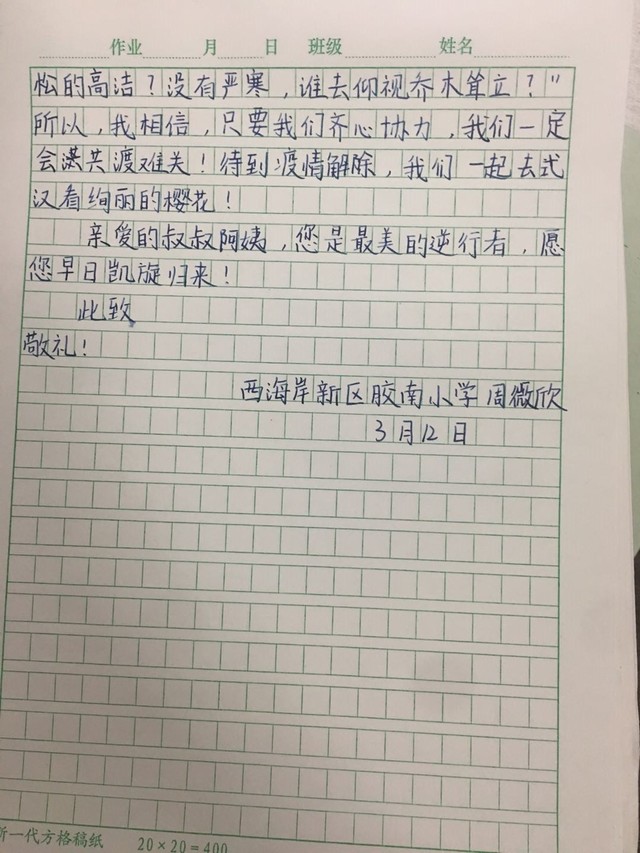 作业 月 日 班级 姓名
松的高洁?没有严寒,谁去仰视乔木耸立?"
所以,我相信,只要我们齐心协力,我们一定
会共渡难关!待到疫情解除,我们一起去武
汉看绚丽的樱花!
亲爱的叔叔阿姨,您是最美的逆行者,愿
您早日凯旋归来!
此致
敬礼!
西海岸新区胶南小学 周薇欣
3月12日
新一代方格稿纸 20×20=400